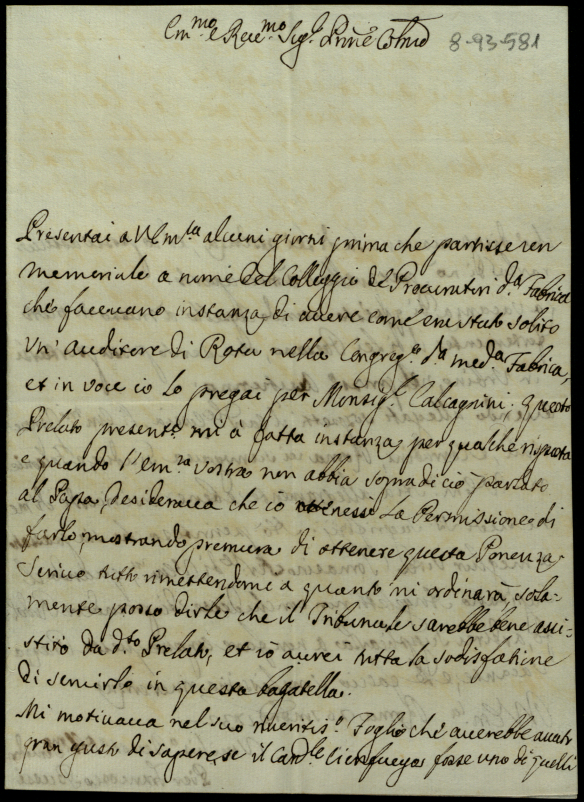 Em.mo e Rev.mo Sig.r Prne Colmo
8-93-581
Presentai a V Em.za alcuni giorni prima che partisse un
memoriale a nome del Colleggio de Procuratori d.a Fabrica
che facevano instanza di avere come era stato solito
Un' Auditore di Rota nella Congreg.e d.a med.a Fabrica,
et in voce io lo pregai per Monsig.e Calcagnini; questo
Prelato present.e mi à fatta instanza per qualche risposta
e quando l'em.za vostra non abbia sopra di ciò parlato
al Papa, desiderava che io ottenessi la Permissione di
farlo, mostrando premura di ottenere questa Ponenza,
Scrivo tutto rimettendomi a quanto mi ordinarà, sola-
mente posso dirle che il Tribunale sarebbe bene assi-
stito da d.to Prelato, et io avrei tutta la sodisfatione
di servirlo in questa bagatella.
Mi motivava nel suo riveritis.o Foglio che averebbe avuto
gran gusto di sapere, se il Card.le Cienfuegos fosse uno di quelli